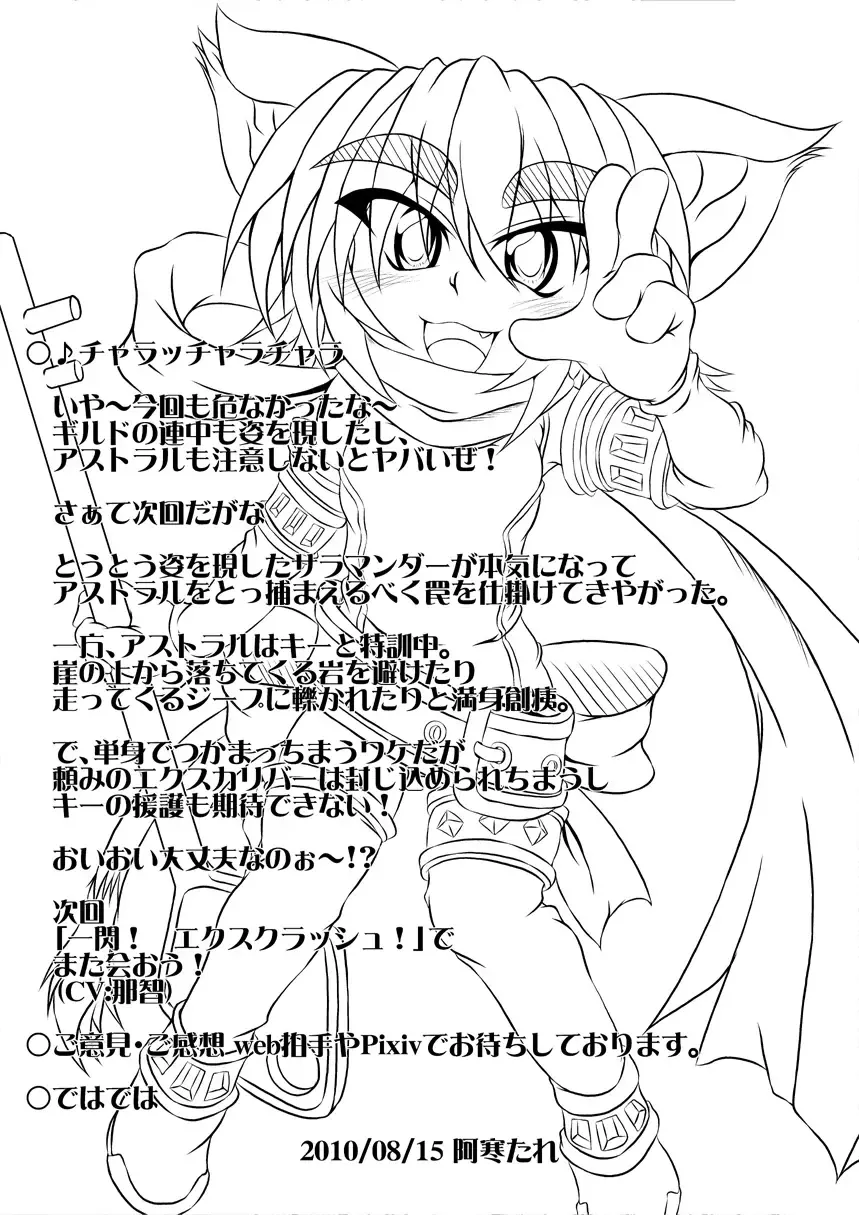 ○♪チャラッチャラチャラ
いや〜今回も危なかったな〜
ギルドの連中も姿を現したし、
アストラルも注意しないとヤバいぜ！
さぁて次回だがな
とうとう姿を現したサラマンダーが本気になって
アストラルをとっ捕まえるべく罠を仕掛けてきやがった。
一方、アストラルはキーと特訓中。
崖の上から落ちてくる岩を避けたり
走ってくるジープに轢かれたりと満身創痍。
で、単身でつかまっちまうワケだが
頼みのエクスカリバーは封じ込められちまうし
キーの援護も期待できない！
おいおい大丈夫なのぉ〜!?
次回
「一閃！　エクスクラッシュ！」で
また会おう！
(CV:那智)
○ご意見・ご感想 web拍手やPixivでお待ちしております。
○ではでは
2010/08/15 阿寒たれ